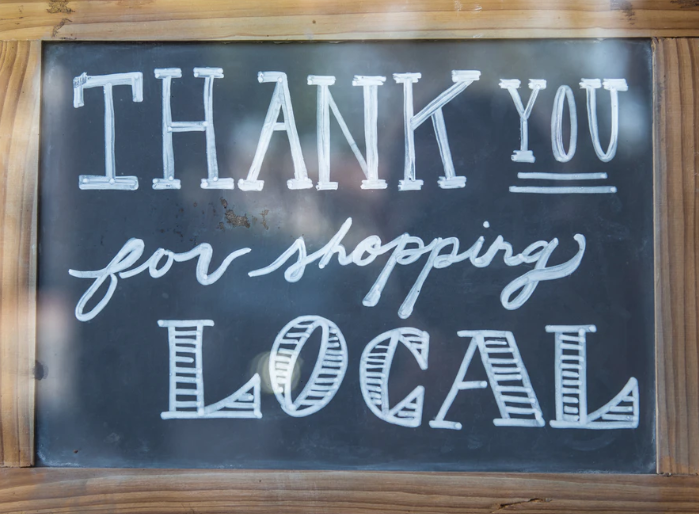 THANK YOU
for shopping
LOCAL